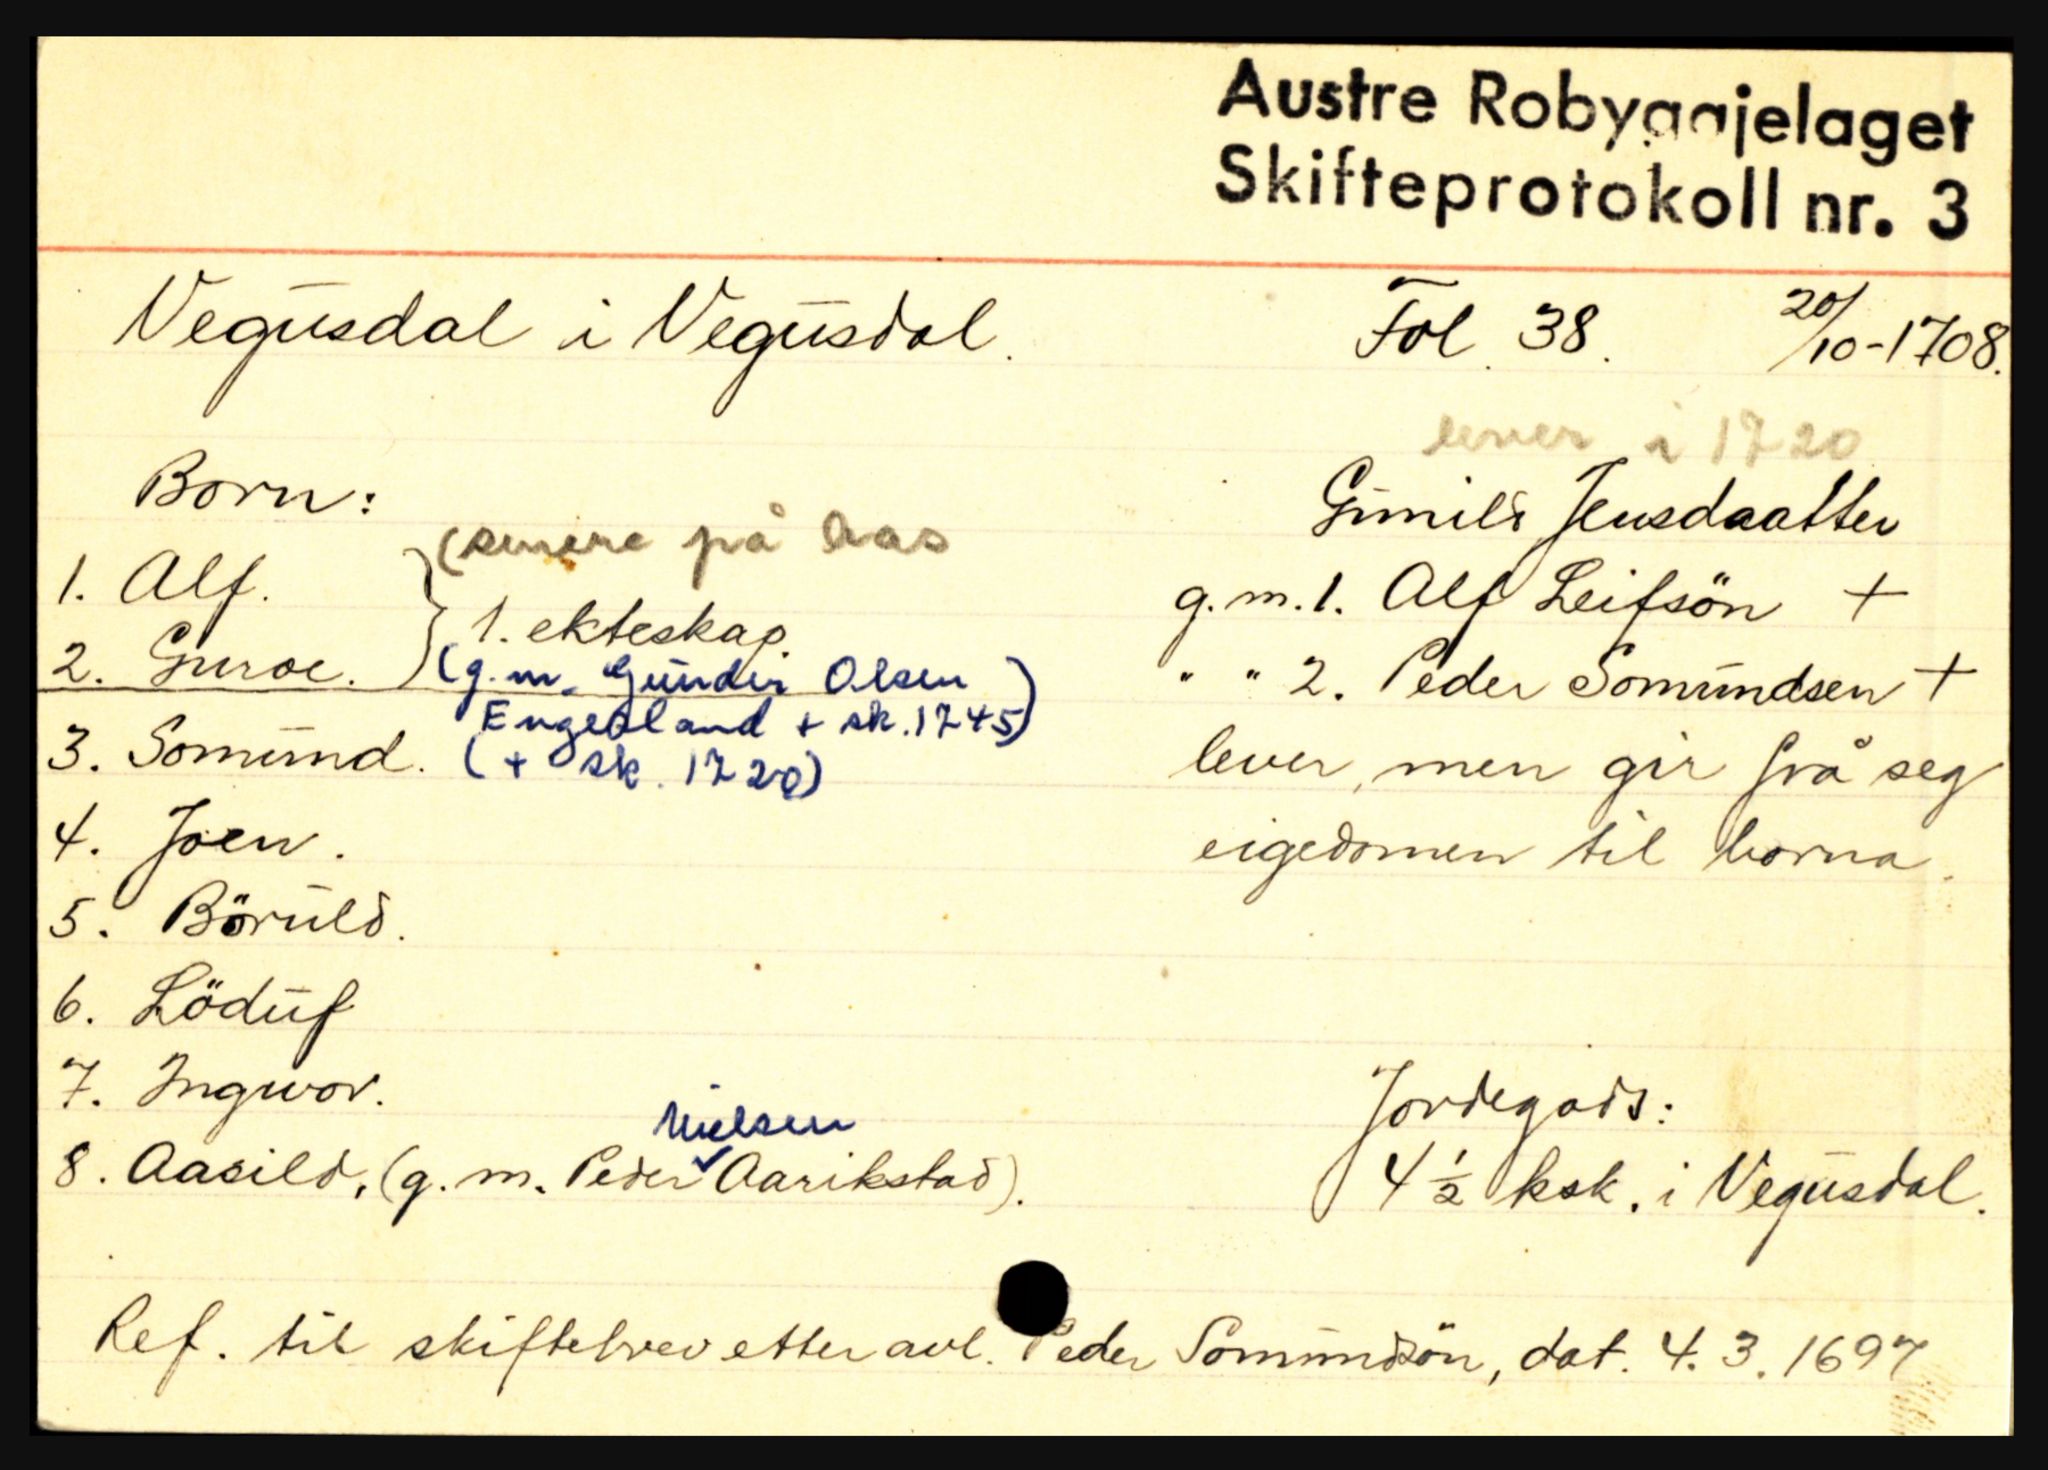 Austre Robyggjelaget
Skifteprotokoll nr. 3
Vegusdal i Vegusdal. Fol. 38. 20/10-1708.
lever i 1720
Born: Gunild Jensdaatter
(senere på Aas
1. Alf. g.m. 1. Alf Leifsön +
1. ekteskap.
2. Guroe. (g.m. Gunder Olsen " " 2. Peder Somundsen +
Engesland + sk. 1745)
3. Somund. (+ sk. 1720) lever, men gir frå seg
4. Joen. eigedomen til borna.
5. Böruld.
6. Löduf
7. Ingwor. Jordegods:
Nielsen
8. Aasild, (g.m. Peder Aarikstad). 4 ½ ksk. i Vegusdal.
Ref. til skiftebrev etter avl. Peder Somundsön, dat. 4.3.1697